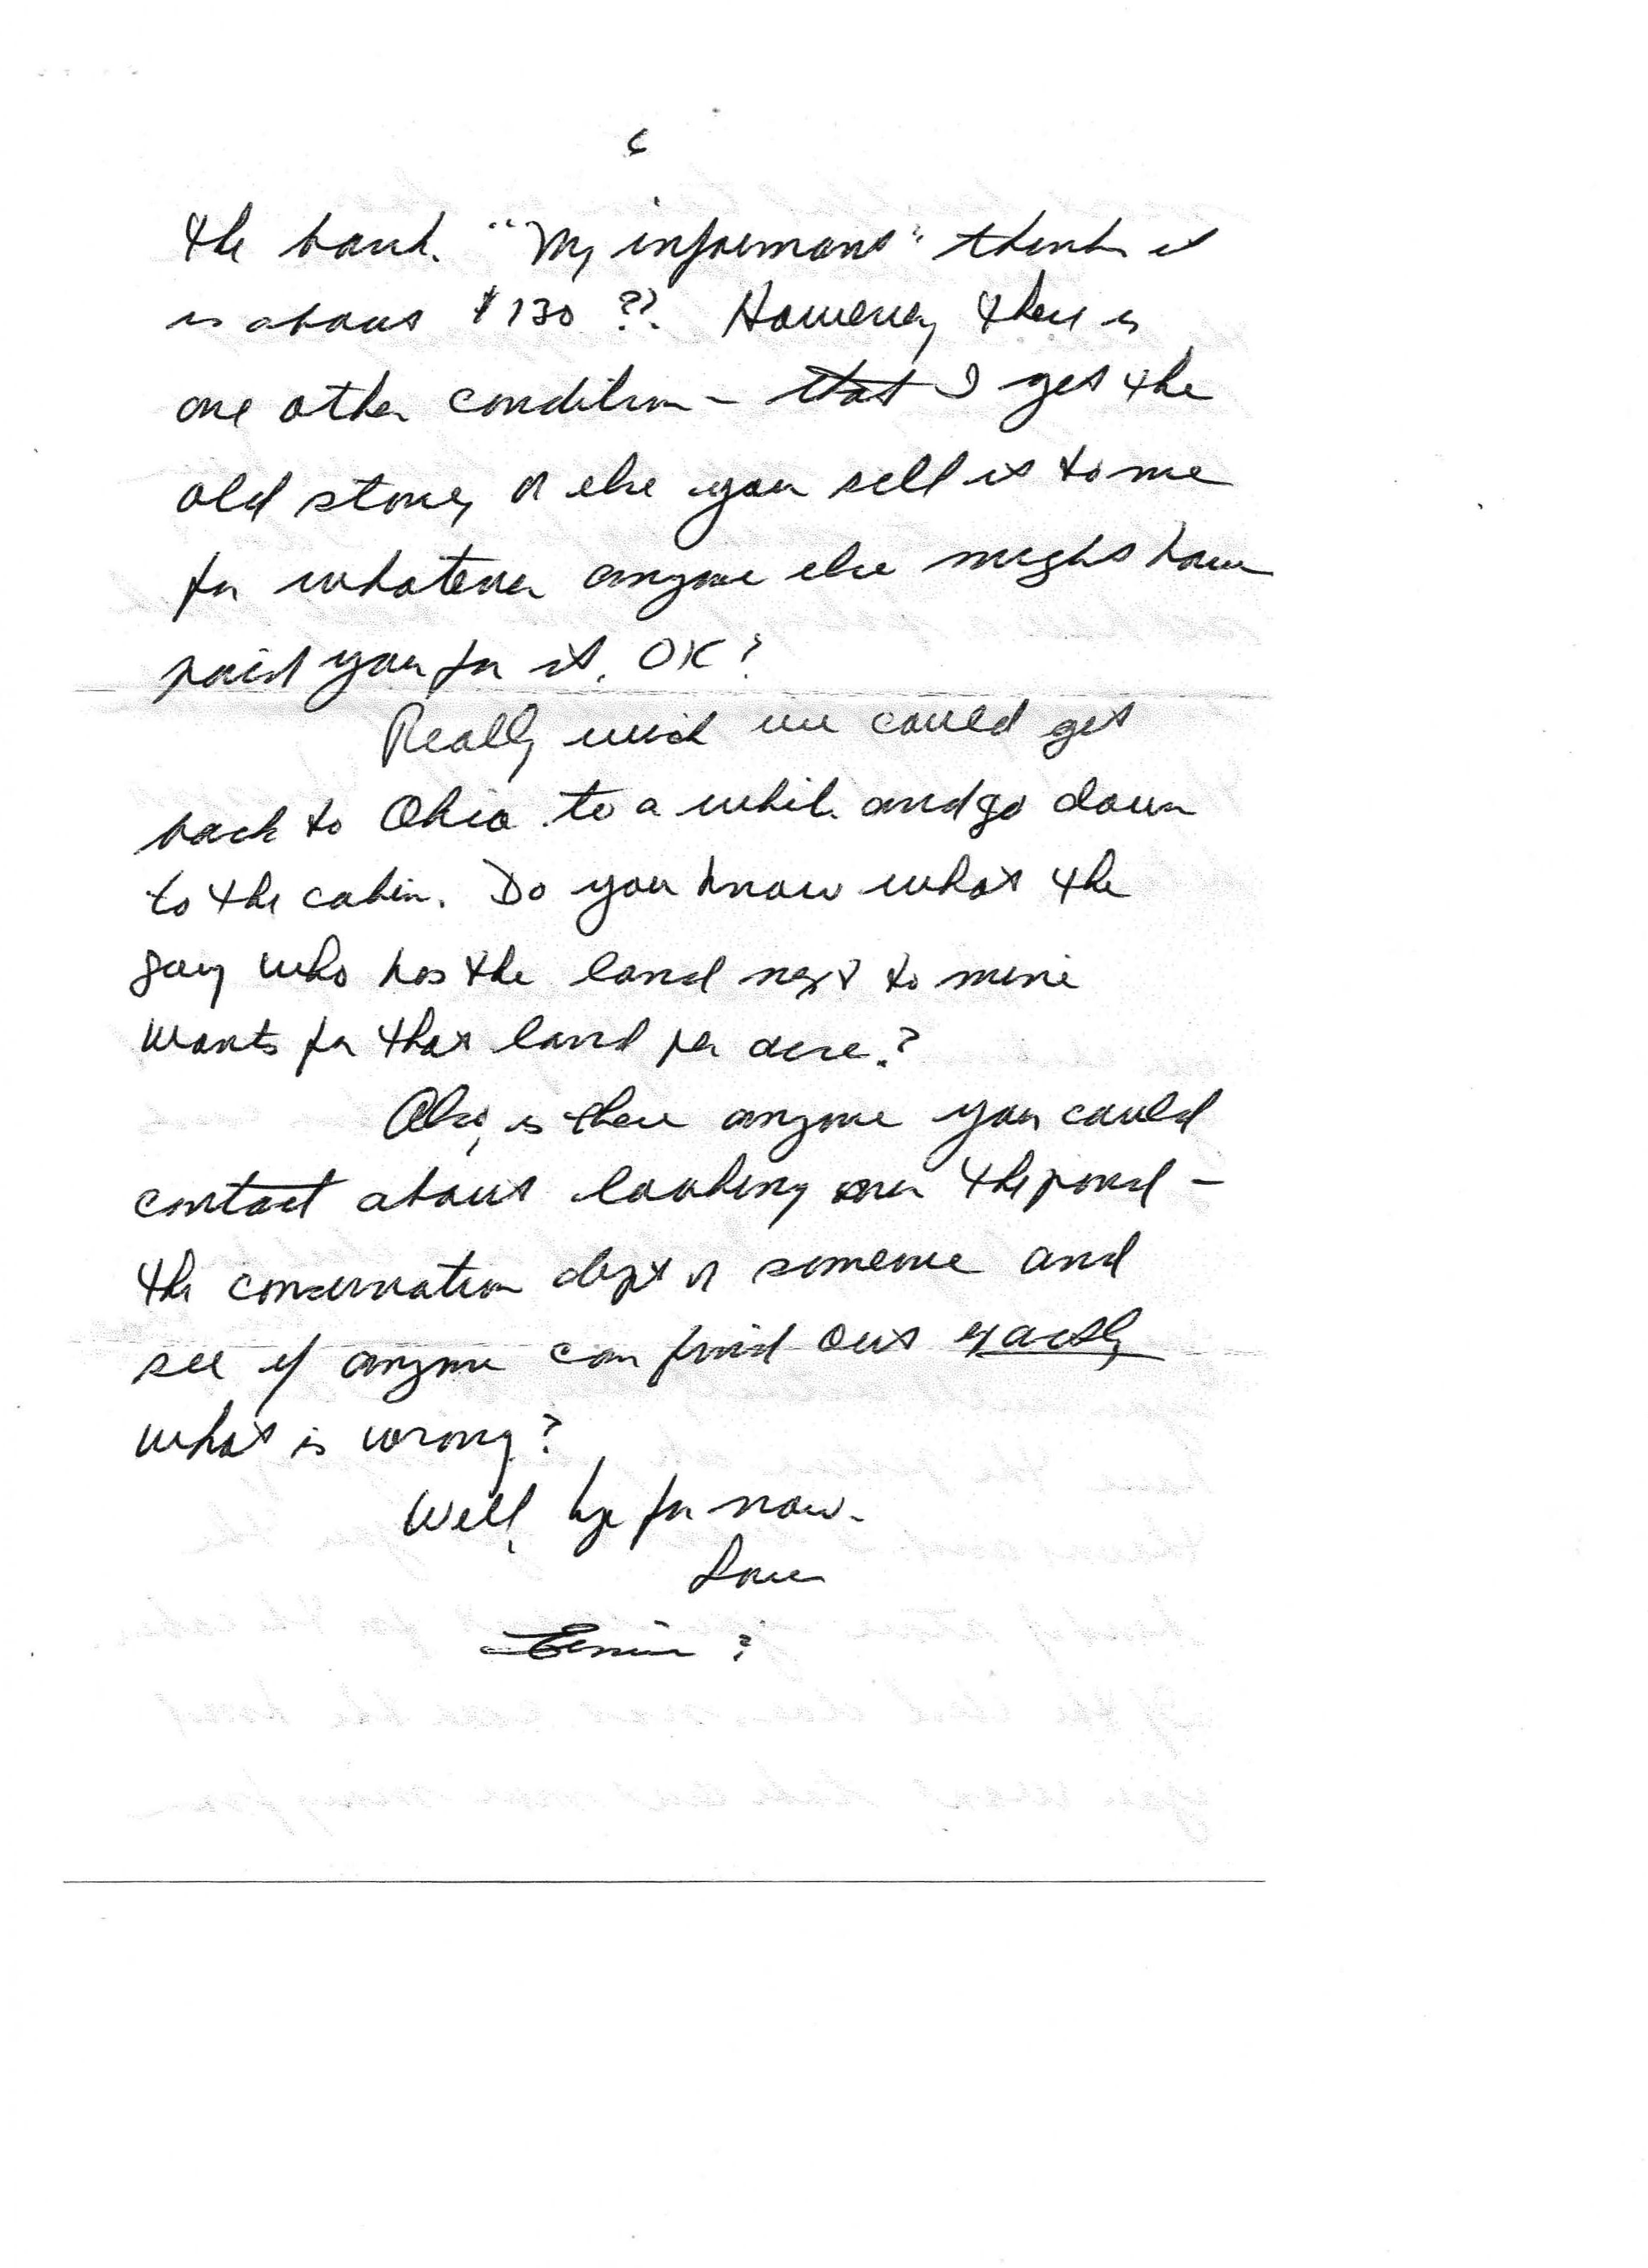 6
the bank. "My informant" thinks it
is about $130 ??. However, there is
one other condition - that I get the
old stove, or else you sell it to me
for whatever anyone else might have
paid you for it. OK?
Really wish we could get
back to Ohio to a while and go down
to the cabin. Do you know what the
guy who has the land next to mine
wants for that land per acre?
Also, is there anyone you could
contact about looking over the pond -
the conservation dept or someone and
see if anyone can find out exactly
what is wrong?
Well, bye for now.
Love